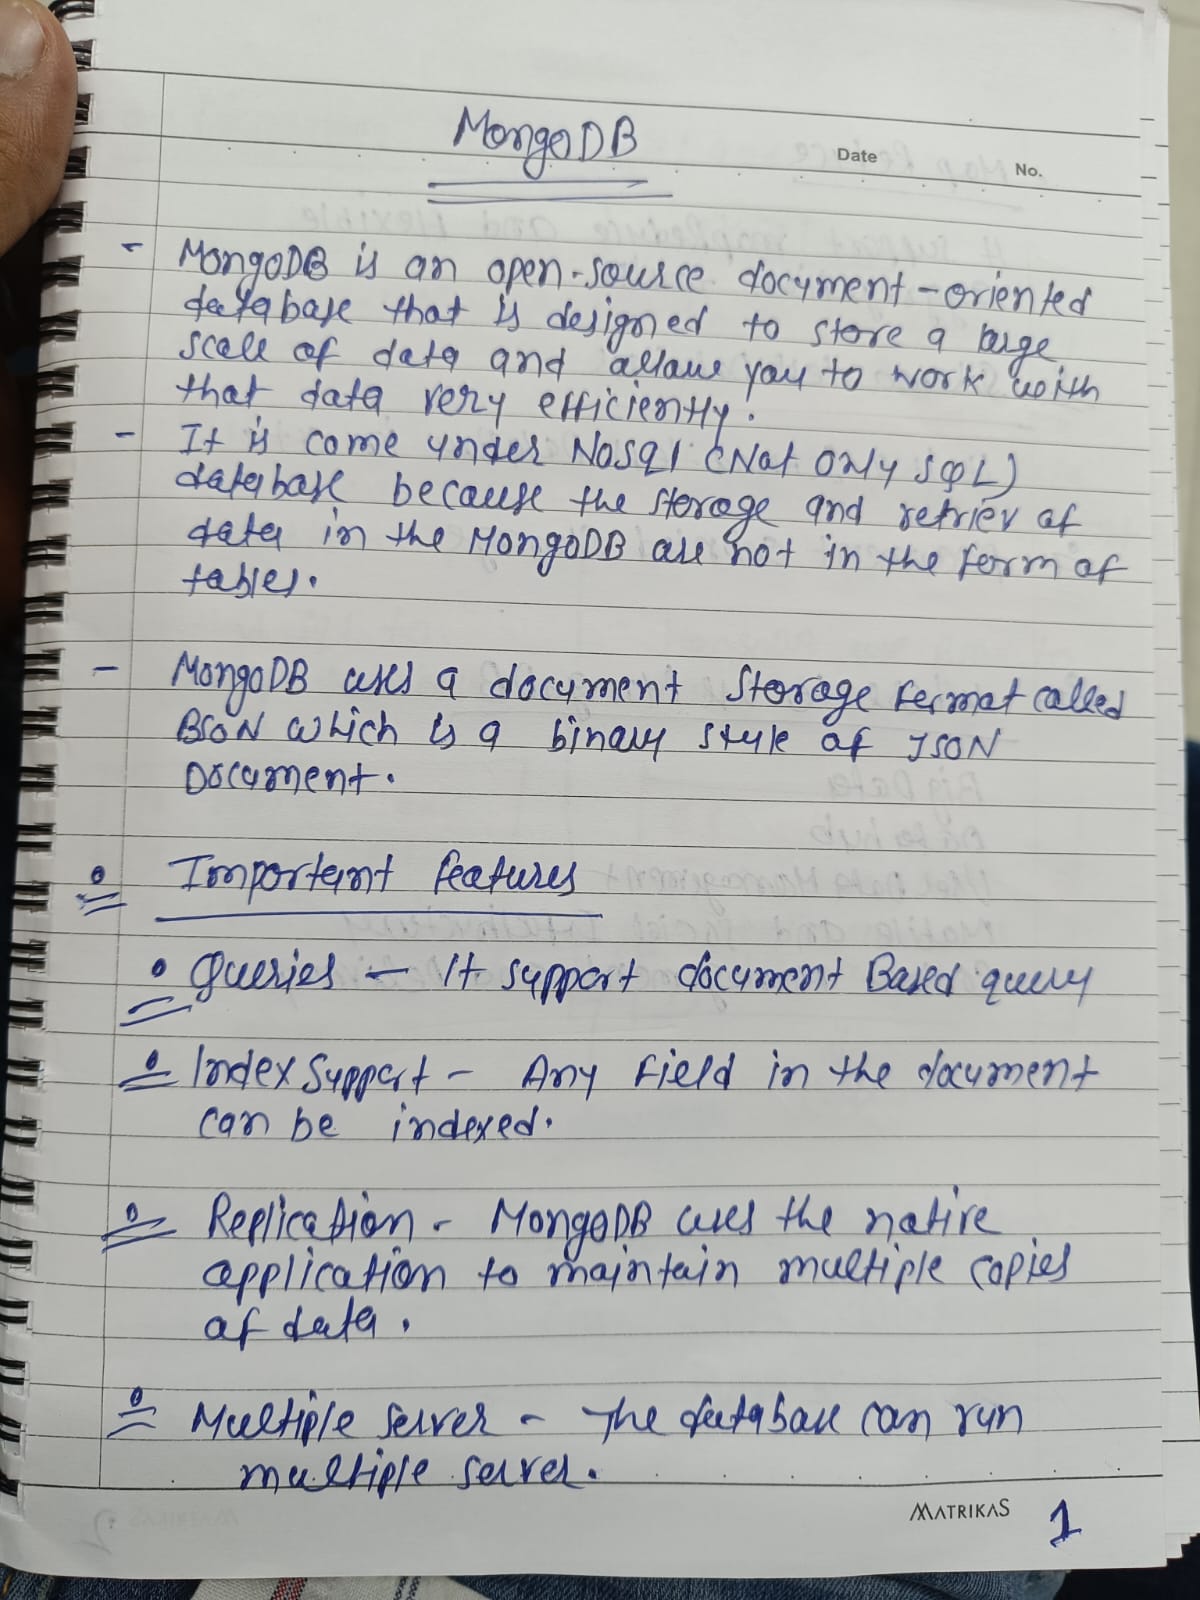 MongoDB
Date
No.
- MongoDB is an open-source document-oriented
database that is designed to store a large
scale of data and allow you to work with
that data very efficiently.
- It is come under NoSql (Not Only SQL)
database because the storage and retriev of
data in the MongoDB are not in the form of
tables.
- MongoDB uses a document storage format called
BSON which is a binary style of JSON
Document.
Important features
• Queries - It support document Based query
• Index Support - Any Field in the document
can be indexed.
• Replication - MongoDB uses the native
application to maintain multiple copies
of data.
• Multiple server - The database can run
multiple server.
MATRIKAS
1